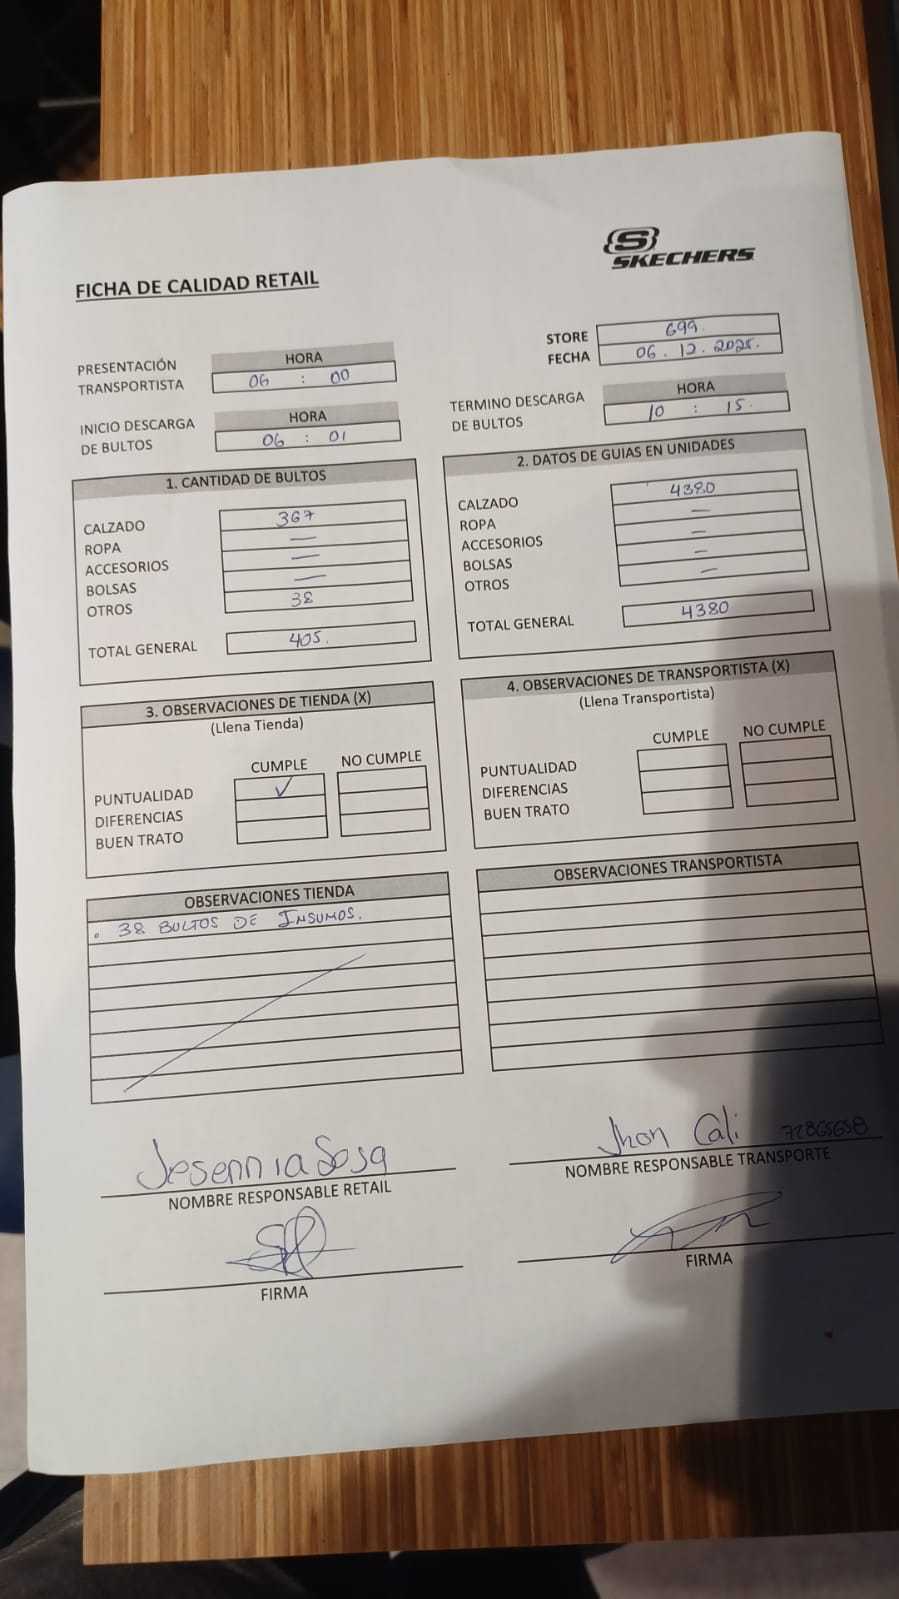 SKECHERS
FICHA DE CALIDAD RETAIL
STORE 699.
FECHA 06.12.2025.
PRESENTACIÓN TRANSPORTISTA
HORA
06 : 00
INICIO DESCARGA DE BULTOS
HORA
06 : 01
TERMINO DESCARGA DE BULTOS
HORA
10 : 15.
1. CANTIDAD DE BULTOS
CALZADO 367
ROPA —
ACCESORIOS —
BOLSAS —
OTROS 38
TOTAL GENERAL 405.
2. DATOS DE GUIAS EN UNIDADES
CALZADO 4380
ROPA —
ACCESORIOS —
BOLSAS —
OTROS —
TOTAL GENERAL 4380
3. OBSERVACIONES DE TIENDA (X)
(Llena Tienda)
CUMPLE NO CUMPLE
PUNTUALIDAD ✓
DIFERENCIAS
BUEN TRATO
4. OBSERVACIONES DE TRANSPORTISTA (X)
(Llena Transportista)
CUMPLE NO CUMPLE
PUNTUALIDAD
DIFERENCIAS
BUEN TRATO
OBSERVACIONES TIENDA
. 38 BULTOS DE INSUMOS.
OBSERVACIONES TRANSPORTISTA
Jesennia Sosa
NOMBRE RESPONSABLE RETAIL
FIRMA
Jhon Cali 72865658
NOMBRE RESPONSABLE TRANSPORTE
FIRMA